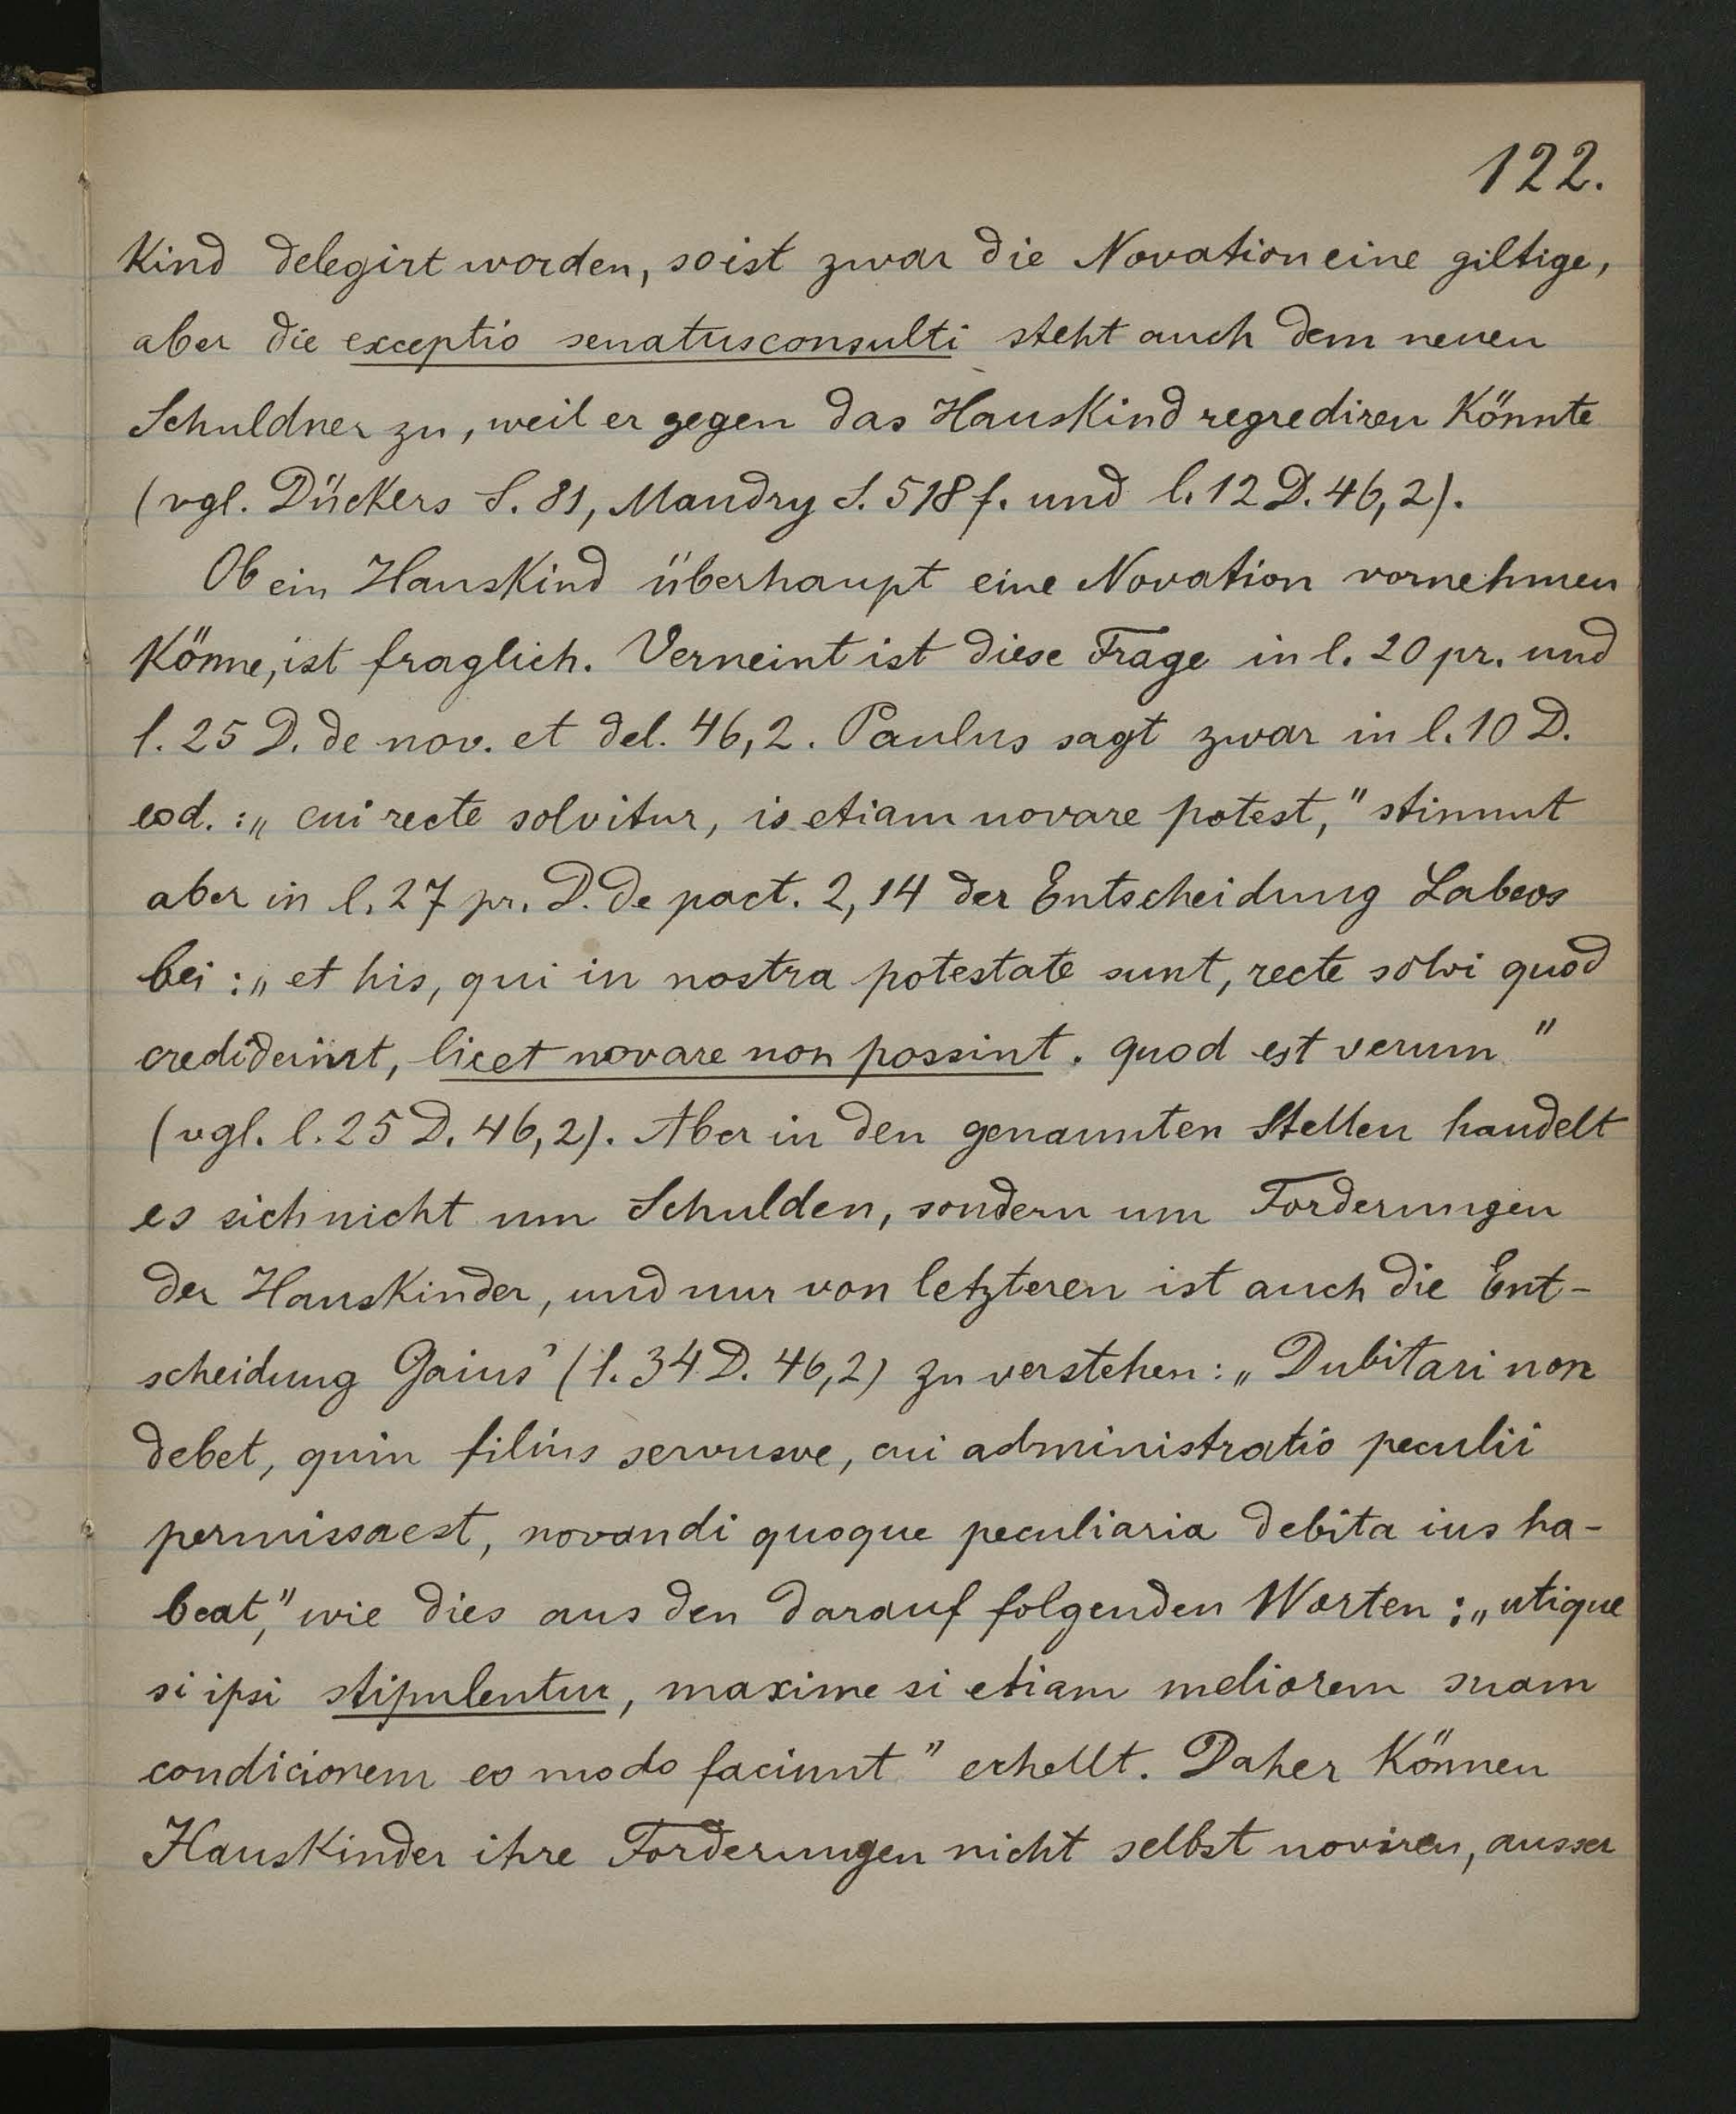 122.
Kind delegirt worden, so ist zwar die Novation eine giltige,
aber die exceptio senatusconsulti steht auch dem neuen
Schuldner zu, weil er gegen das Hauskind regrediren könnte
(vgl. Dückers S. 81, Mandry S. 518 f. und l. 12 D. 46, 2).
Ob ein Hauskind überhaupt eine Novation vornehmen
könne, ist fraglich. Verneint ist diese Frage in l. 20 pr. und
l. 25 D. de nov. et del. 46, 2. Paulus sagt zwar in l. 10 D.
eod.: „cui recte solvitur, is etiam novare potest," stimmt
aber in l. 27 pr. D. de pact. 2, 14 der Entscheidung Labeos
bei: „et his, qui in nostra potestate sunt, recte solvi quod
crediderint, licet novare non possint. quod est verum"
(vgl. l. 25 D. 46, 2). Aber in den genannten Stellen handelt
es sich nicht um Schulden, sondern um Forderungen
der Hauskinder, und nur von letzteren ist auch die Ent-
scheidung Gaius' (l. 34 D. 46, 2) zu verstehen: „Dubitari non
debet, quin filius servusve, cui administratio peculii
permissa est, novandi quoque peculiaria debita ius ha-
beat," wie dies aus den darauf folgenden Worten: „utique
si ipsi stipulentur, maxime si etiam meliorem suam
condicionem eo modo faciunt" erhellt. Daher können
Hauskinder ihre Forderungen nicht selbst noviren, ausser